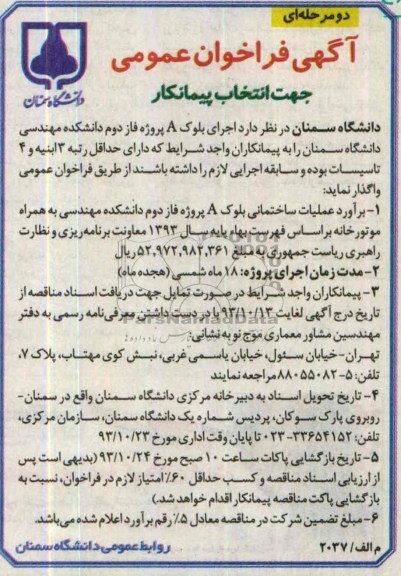 دومرحله‌ای
آگهی فراخوان عمومی
جهت انتخاب پیمانکار
دانشگاه سمنان
دانشگاه سمنان در نظر دارد اجرای بلوک A پروژه فاز دوم دانشکده مهندسی
دانشگاه سمنان را به پیمانکاران واجد شرایط که دارای حداقل رتبه ۳ ابنیه و ۴
تاسیسات بوده و سابقه اجرایی لازم را داشته باشند از طریق فراخوان عمومی
واگذار نماید:
۱- برآورد عملیات ساختمانی بلوک A پروژه فاز دوم دانشکده مهندسی به همراه
موتورخانه براساس فهرست بهاء پایه سال ۱۳۹۳ معاونت برنامه‌ریزی و نظارت
راهبری ریاست جمهوری به مبلغ ۵۲,۹۷۲,۹۸۲,۳۶۱ ریال
۲- مدت زمان اجرای پروژه: ۱۸ ماه شمسی (هجده ماه)
۳- پیمانکاران واجد شرایط در صورت تمایل جهت دریافت اسناد مناقصه از
تاریخ درج آگهی لغایت ۹۳/۱۰/۱۳ با در دست داشتن معرفی‌نامه رسمی به دفتر
مهندسین مشاور معماری موج نو به نشانی:
تهران- خیابان سئول، خیابان یاسمی غربی، نبش کوی مهتاب، پلاک ۷،
تلفن: ۵-۸۸۰۵۵۰۸۲ مراجعه نمایند
۴- تاریخ تحویل اسناد به دبیرخانه مرکزی دانشگاه سمنان واقع در سمنان-
روبروی پارک سوکان، پردیس شماره یک دانشگاه سمنان، سازمان مرکزی،
تلفن: ۳۳۶۵۴۱۵۲-۰۲۳ تا پایان وقت اداری مورخ ۹۳/۱۰/۲۳
۵- تاریخ بازگشایی پاکات ساعت ۱۰ صبح مورخ ۹۳/۱۰/۲۴ (بدیهی است پس
از ارزیابی اسناد مناقصه و کسب حداقل ۶۰٪ امتیاز لازم در فراخوان، نسبت به
بازگشایی پاکت مناقصه پیمانکار اقدام خواهد شد.)
۶- مبلغ تضمین شرکت در مناقصه معادل ۵٪ رقم برآورد اعلام شده می‌باشد.
م الف/ ۲۰۳۷
روابط عمومی دانشگاه سمنان
ParsNamadData